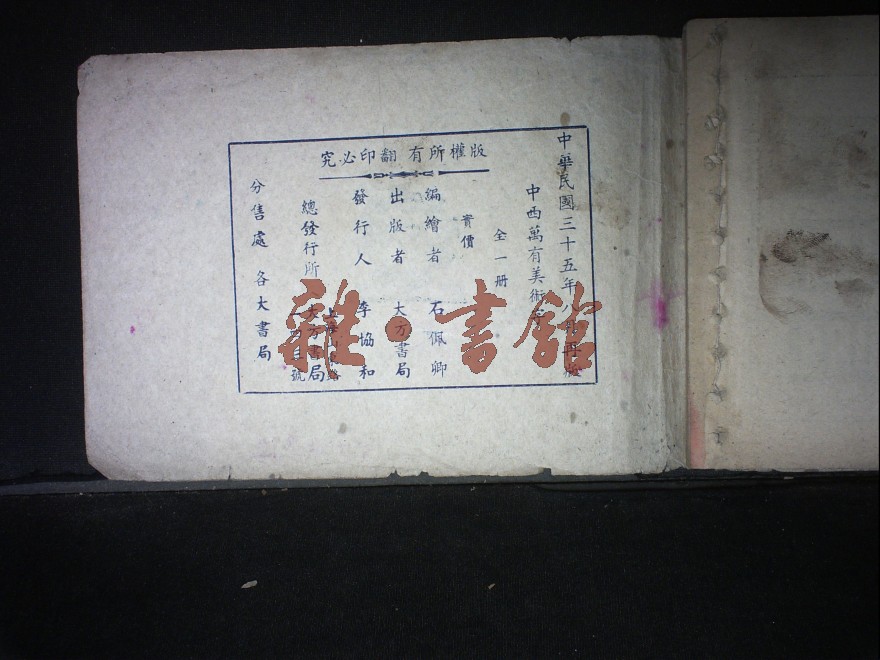 版權所有 翻印必究
中華民國三十五年
中西萬有美術
全一册
實價
編繪者 石佩卿
出版者 大方書局
發行人 李協和
總發行所 大方書局
分售處 各大書局
雜·書館